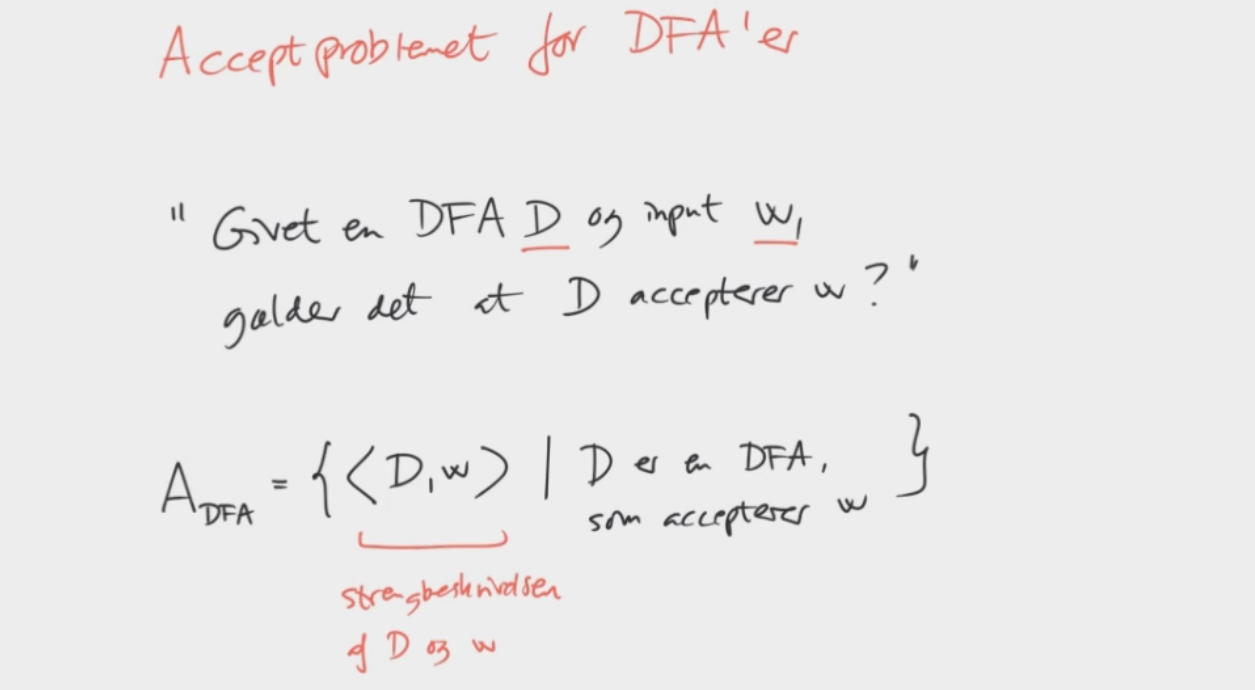 Acceptproblemet for DFA'er
"Givet en DFA D og input w,
gælder det at D accepterer w?"
A_DFA = {⟨D,w⟩ | D er en DFA,
som accepterer w}
strengbeskrivelsen
af D og w